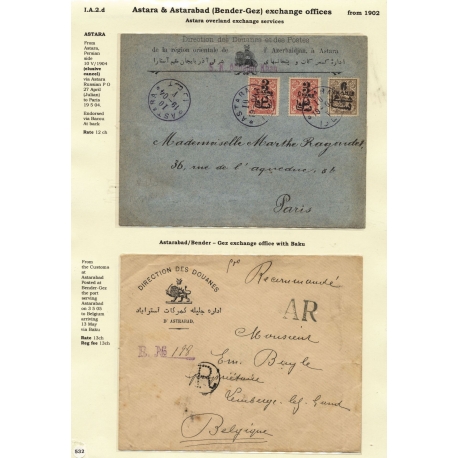 I.A.2.d
Astara & Astarabad (Bender-Gez) exchange offices
from 1902
Astara overland exchange services
ASTARA
From
Astara,
Persian
side
10 V/1904
(elusive
cancel)
via Astara
Russian P O
27 April
(Julian)
to Paris
19 5 04.
Endorsed
via Bacou
At back
Rate 12 ch
Direction des Douanes et des Postes
de la région orientale de l'Azerbaïdjan, à Astara
Mademoiselle Marthe Ragandet
36, rue de l'aqueduc 36
Paris
Astarabad/Bender – Gez exchange office with Baku
From
the Customs
at
Astarabad
Posted at
Bender-Gez
the port
serving
Astarabad
on 2 5 05
to Belgium
arriving
13 May
via Baku
Rate 13ch
Reg fee 13ch
DIRECTION DES DOUANES
اداره جلیله گمرکات استراباد
D'ASTRABAD.
Recommandé
AR
R. № 198
R
Monsieur
Em. Buyle
propriétaire
Belgique
532